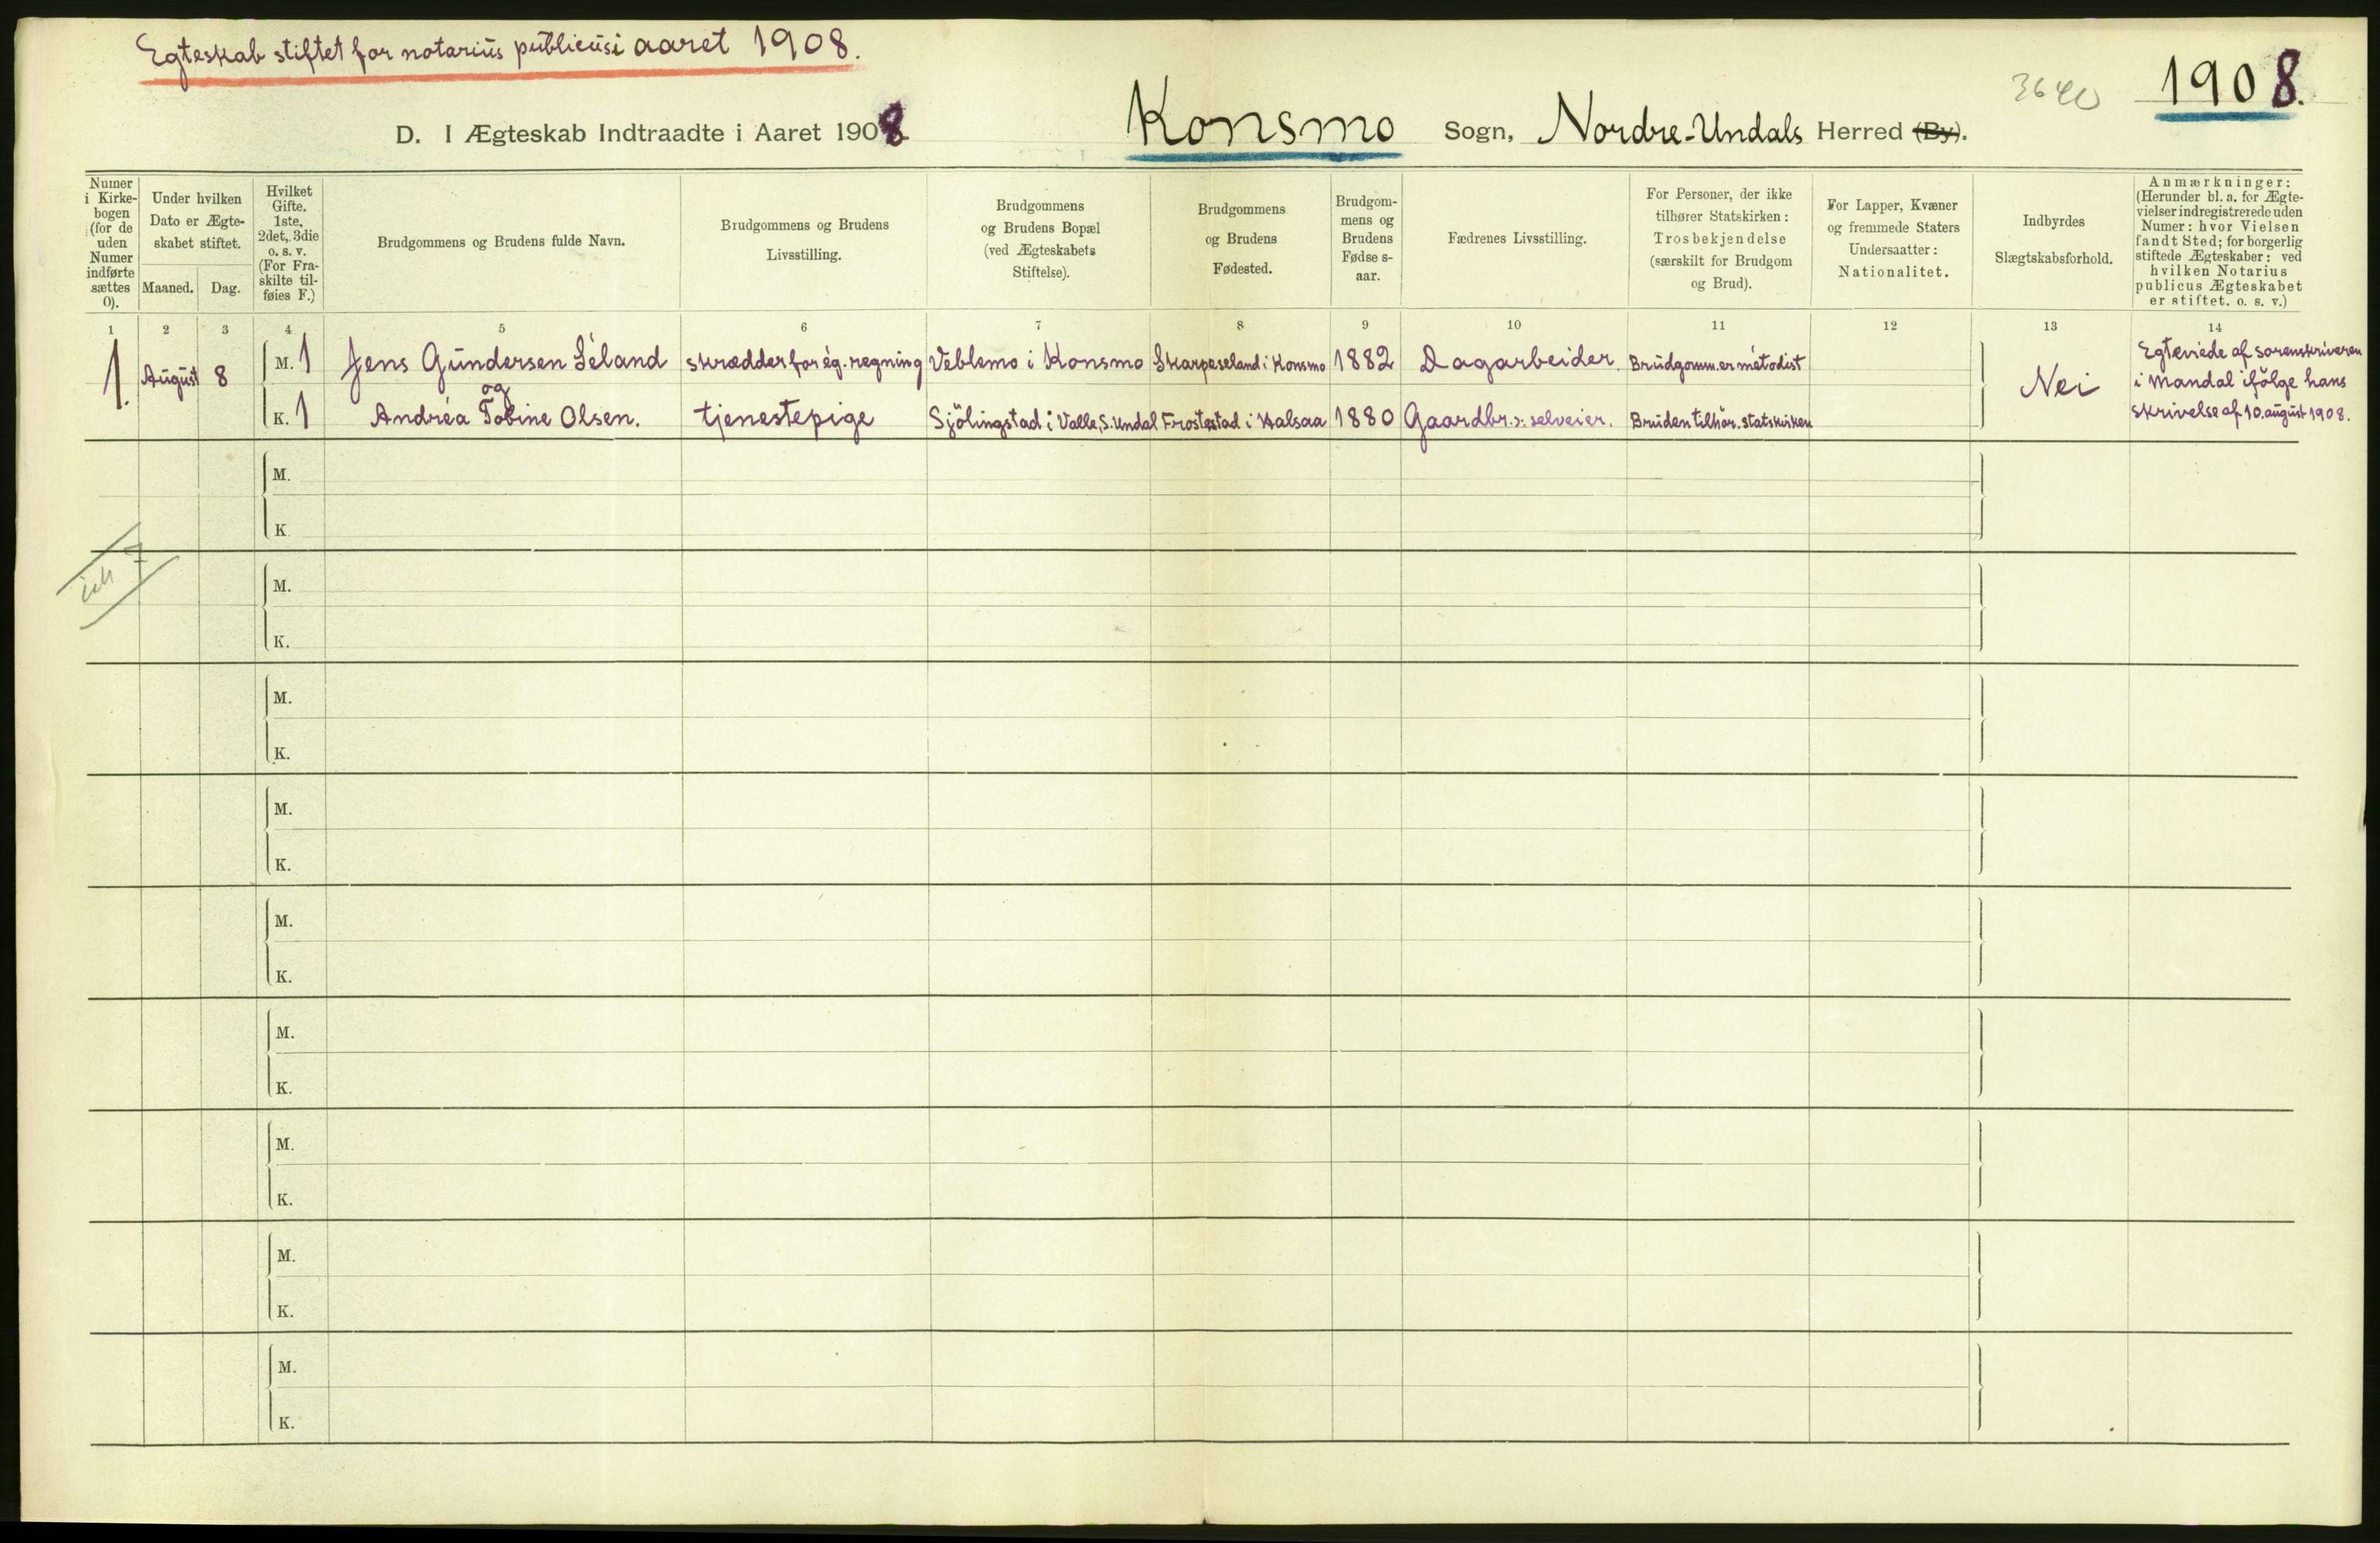 Egteskab stiftet for notarius publicus i aaret 1908.
3640
1908.
D. I Ægteskab Indtraadte i Aaret 1908. Konsmo Sogn, Nordre-Undals Herred (By).
Numer i Kirke-bogen (for de uden Numer indførte sættes 0).
Under hvilken Dato er Ægte-skabet stiftet.
Maaned. Dag.
Hvilket Gifte. 1ste, 2det, 3die o. s. v. (For Fra-skilte til-føies F.)
Brudgommens og Brudens fulde Navn.
Brudgommens og Brudens Livsstilling.
Brudgommens og Brudens Bopæl (ved Ægteskabets Stiftelse).
Brudgommens og Brudens Fødested.
Brudgom-mens og Brudens Fødse s-aar.
Fædrenes Livsstilling.
For Personer, der ikke tilhører Statskirken: Trosbekjendelse (særskilt for Brudgom og Brud).
For Lapper, Kvæner og fremmede Staters Undersaatter: Nationalitet.
Indbyrdes Slægtskabsforhold.
Anmærkninger: (Herunder bl. a. for Ægte-vielser indregistrerede uden Numer: hvor Vielsen fandt Sted; for borgerlig stiftede Ægteskaber: ved hvilken Notarius publicus Ægteskabet er stiftet. o. s. v.)
1 2 3 4 5 6 7 8 9 10 11 12 13 14
1. August 8
M. 1 Jens Gundersen Séland skrædder for eg. regning Veblemo i Konsmo Skarpeseland i Konsmo 1882 Dagarbeider. Brudgomm. er metodist
og
K. 1 Andréa Tobine Olsen. tjenestepige Sjölingstad i Valle, S. Undal Frostestad i Halsaa 1880 Gaardbr. ɔ: selveier. Bruden tilhör. statskirken
Nei
Egteviede af sorenskriveren
i Mandal ifölge hans
skrivelse af 10. august 1908.
M.
K
M.
K.
M.
K.
M.
K.
M.
K.
M.
K.
M.
K.
M.
K.
M.
K.